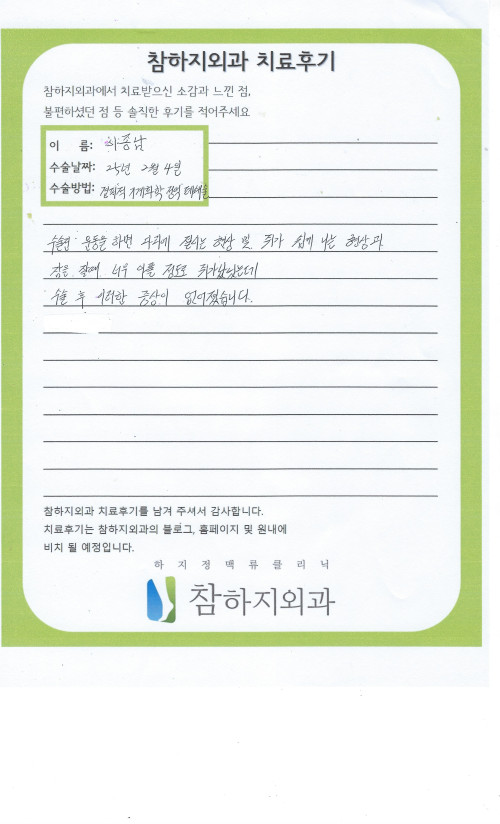 참하지외과 치료후기
참하지외과에서 치료받으신 소감과 느낀 점,
불편하셨던 점 등 솔직한 후기를 적어주세요
이 름: 종남
수술날짜: 25년 2월 4일
수술방법:
수술전 운동을 하면 다리가 저리는 현상 및 쥐가 쉽게 나는 현상과
잠을 잘때 너무 아플 정도로 쥐가났었는데
수술 후 이러한 증상이 없어졌습니다.
참하지외과 치료후기를 남겨 주셔서 감사합니다.
치료후기는 참하지외과의 블로그, 홈페이지 및 원내에
비치 될 예정입니다.
하지정맥류클리닉
참하지외과